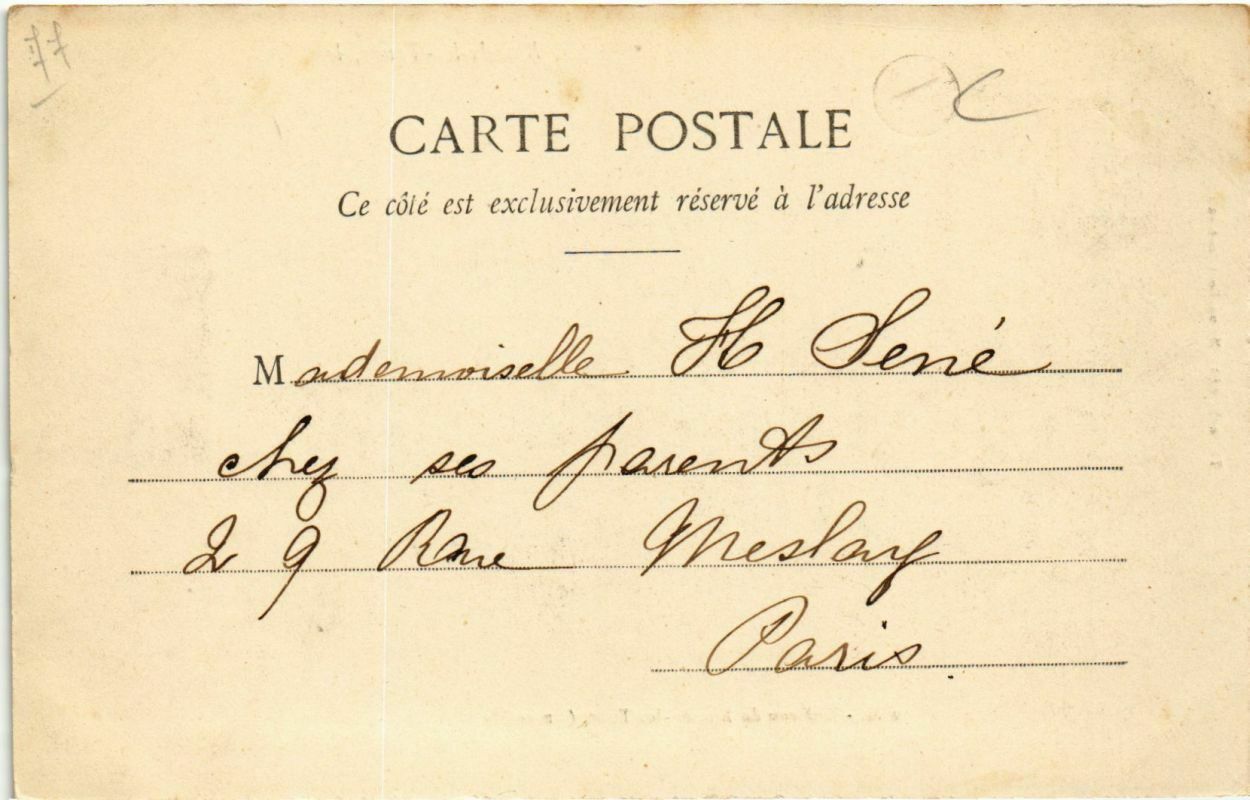 77
CARTE POSTALE
Ce côté est exclusivement réservé à l'adresse
Mademoiselle H Sené
chez ses parents
29 Rue Meslay
Paris